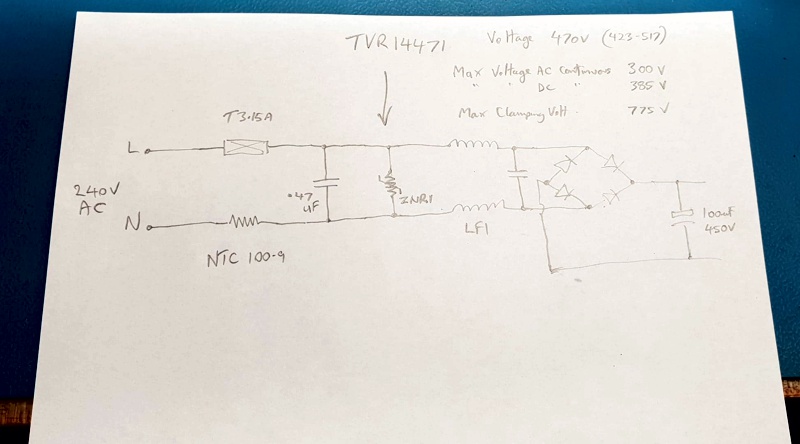 TVR14471
Voltage 470V (423-517)
Max Voltage AC Continuous 300V
" " DC " 385V
Max Clamping Volt. 775V
T3.15A
L
240V
AC
.47
uF
ZNR1
N
LF1
NTC 100-9
100uf
450V